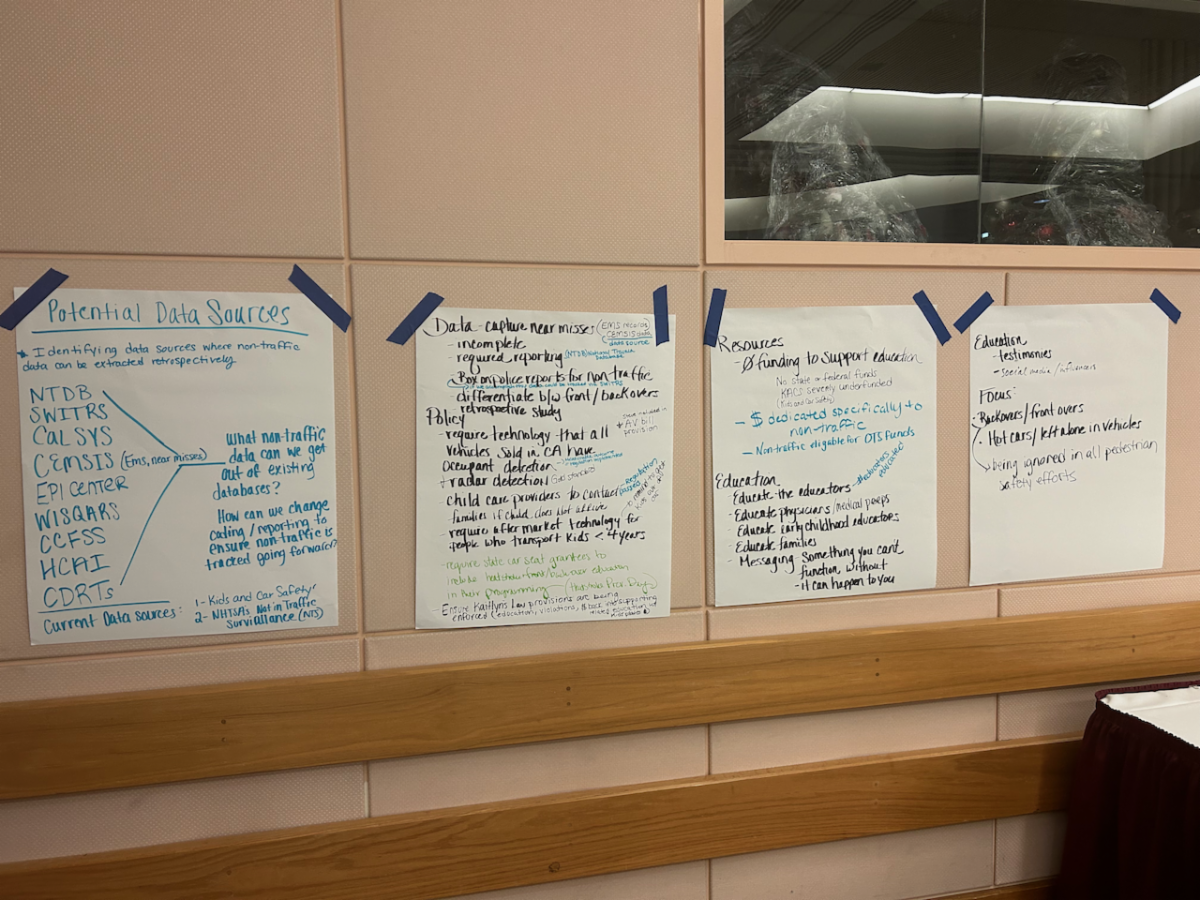 Potential Data Sources
* Identifying data sources where non-traffic
data can be extracted retrospectively
NTDB
SWITRS
CALSYS
CEMSIS (Ems, near misses)
EPICENTER
WISQARS
CCFSS
HCAI
CDRTs
What non-traffic
data can we get
out of existing
databases?
How can we change
coding/reporting to
ensure non-traffic is
tracked going forward?
Current Data Sources:
1- Kids and Car Safety
2- NHTSA's Not in Traffic
Survaillance (NTS)
Data - capture near misses (EMS records)
CEMSIS
data source
- incomplete
- required reporting
Box on police reports for non traffic
differentiate b/w front/backovers
retrospective study
Policy
- require technology that all
vehicles sold in CA have
occupant detection
+ radar detection
+ AV bill
provision
- child care providers to contact
families if child does not arrive
- require aftermarket technology for
people who transport kids < 4 years
- require state car seat grantees to
in their programming
- Ensure Kaitlyns Law provisions are being
enforced (education, violations,
Resources
- Ø funding to support education
No state or federal funds
KACS severely underfunded
(Kids and Car Safety)
- $ dedicated specifically to
non-traffic
- Non-traffic eligible for OTS funds
Education
- Educate the educators
- Educate physicians/medical peeps
- Educate early childhood educators
- Educate families
- Messaging Something you can't
function without
- it can happen to you
Education
- testimonies
- social media/influencers
Focus:
- Backovers/front overs
- Hot cars/left alone in vehicles
being ignored in all pedestrian
safety efforts